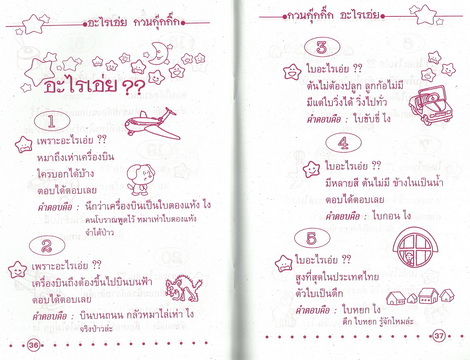 อะไรเอ่ย กวนกุ๊กกิ๊ก
อะไรเอ่ย ??
1
เพราะอะไรเอ่ย ??
หมาถึงเห่าเครื่องบิน
ใครบอกได้บ้าง
ตอบได้ตอบเลย
คำตอบคือ : นึกว่าเครื่องบินเป็นใบตองแห้ง ไง
คนโบราณพูดไว้ หมาเห่าใบตองแห้ง
จำได้ป่าว
2
เพราะอะไรเอ่ย ??
เครื่องบินถึงต้องขึ้นไปบินบนฟ้า
ตอบได้ตอบเลย
คำตอบคือ : บินบนถนน กลัวหมาไล่เห่า ไง
จริงป่าวล่ะ
36
กวนกุ๊กกิ๊ก อะไรเอ่ย
3
ใบอะไรเอ่ย ??
ต้นไม่ต้องปลูก ลูกก้อไม่มี
มีแต่ใบวิ่งได้ วิ่งไปทั่ว
คำตอบคือ : ใบขับขี่ ไง
4
ใบอะไรเอ่ย ??
มีหลายสี ต้นไม่มี ข้างในเป็นน้ำ
ตอบได้ตอบเลย
คำตอบคือ : ใบกอน ไง
5
ใบอะไรเอ่ย ??
สูงที่สุดในประเทศไทย
ตัวใบเป็นตึก
คำตอบคือ : ใบหยก ไง
ตึก ใบหยก รู้จักไหมล่ะ
37